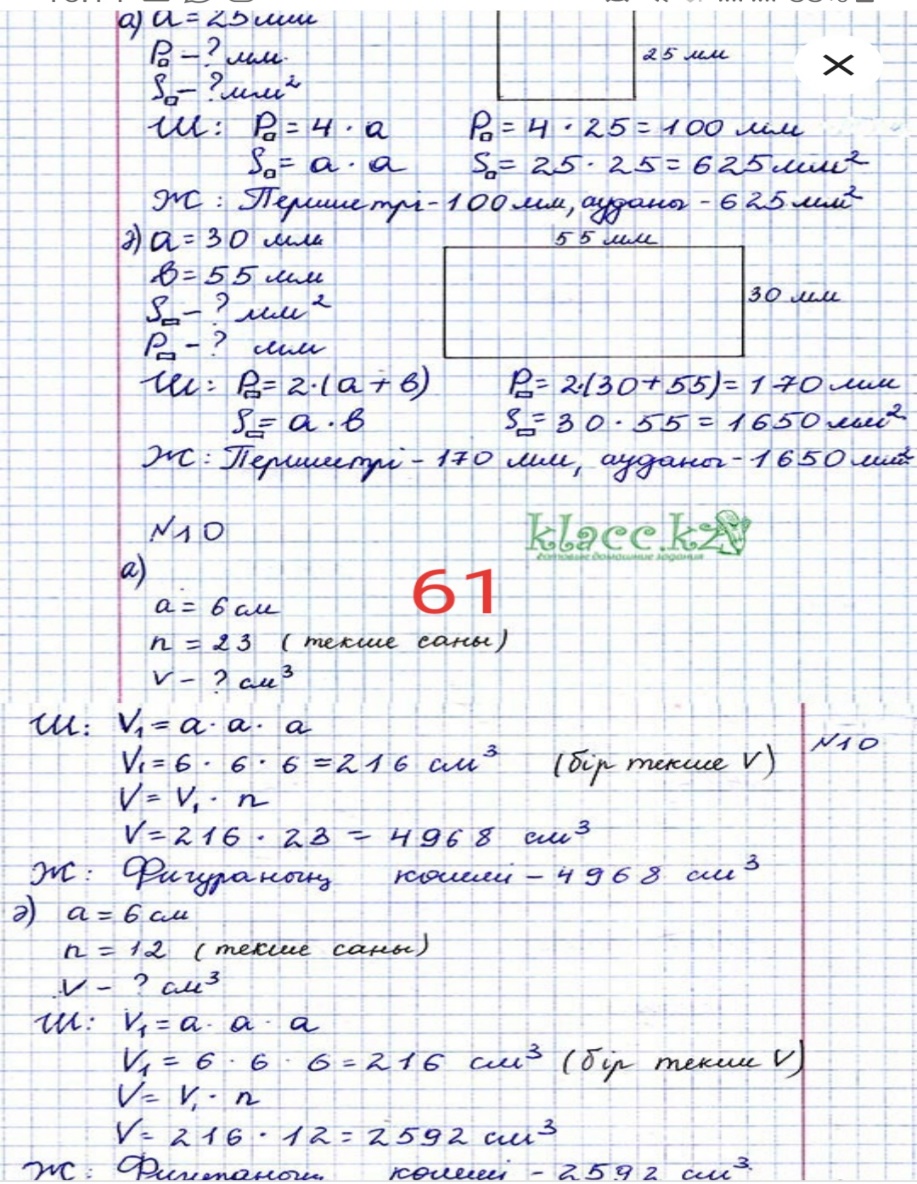 а) a = 25 мм
P□ - ? мм.
25 мм
S□ - ? мм²
Ш: P□ = 4 · a   P□ = 4 · 25 = 100 мм
S□ = a · a   S□ = 25 · 25 = 625 мм²
Ж: Периметрі - 100 мм, ауданы - 625 мм²
ә) a = 30 мм
55 мм
в = 55 мм
30 мм
S▭ - ? мм²
P▭ - ? мм
Ш: P▭ = 2·(a + в)   P▭ = 2·(30+55) = 170 мм
S▭ = a · в   S▭ = 30 · 55 = 1650 мм²
Ж: Периметрі - 170 мм, ауданы - 1650 мм²
N10
klacc.kz
готовые домашние задания
а)
61
a = 6 см
n = 23 (текше саны)
V - ? см³
Ш: V₁ = a · a · a
N10
V₁ = 6 · 6 · 6 = 216 см³ (бір текше V)
V = V₁ · n
V = 216 · 23 = 4968 см³
Ж: Фигураның көлемі - 4968 см³
ә) a = 6 см
n = 12 (текше саны)
V - ? см³
Ш: V₁ = a · a · a
V₁ = 6 · 6 · 6 = 216 см³ (бір текше V)
V = V₁ · n
V = 216 · 12 = 2592 см³
Ж: Фигураның көлемі - 2592 см³